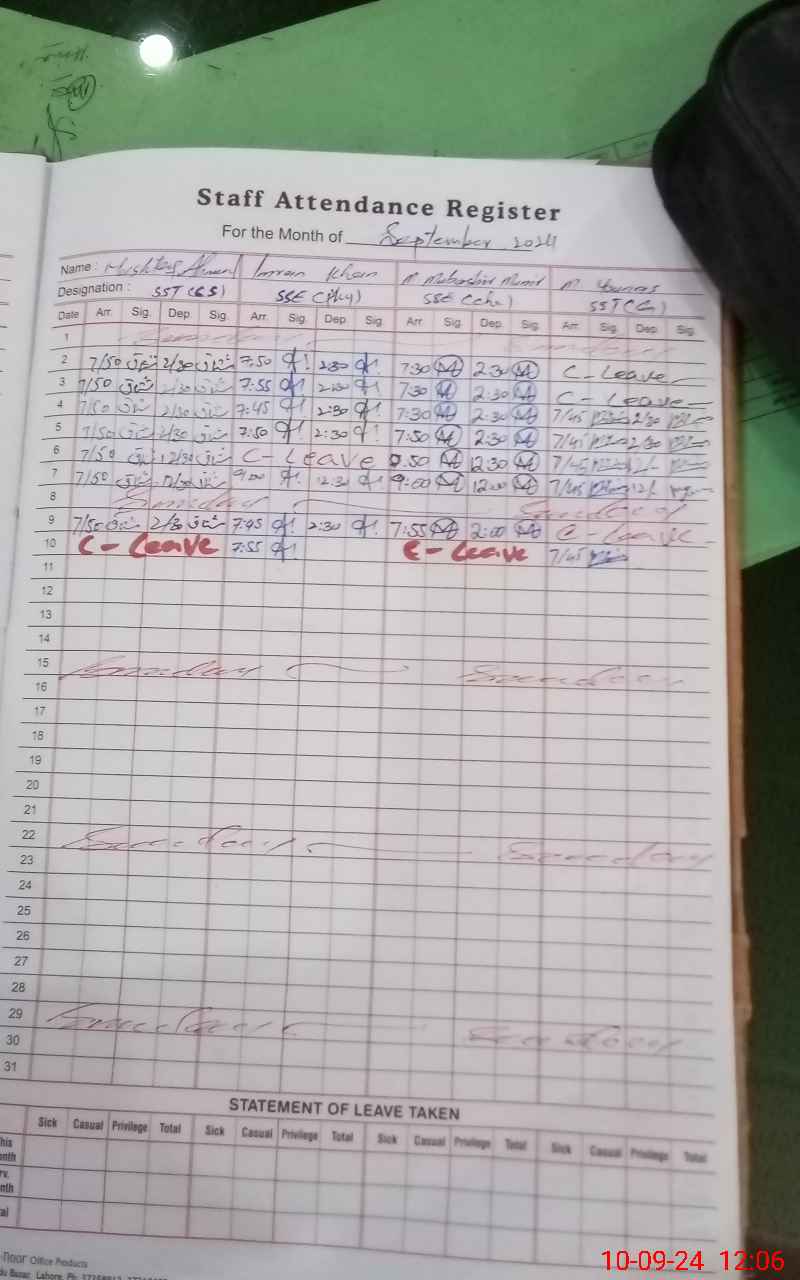 Staff Attendance Register
For the Month of September 2024
Name : Mushtaq Ahmed Imran Khan M. Mubashir Munir M. Younas
Designation : SST (CS) SSE (Phy) SSE (Che) SST (G)
Date Arr. Sig. Dep. Sig. Arr. Sig. Dep. Sig. Arr. Sig. Dep. Sig. Arr. Sig. Dep. Sig.
1 Sunday
2 7/50 مشتاق 2/30 مشتاق 7:50 2:30 7:30 2:30 C - Leave
3 7/50 مشتاق 2/30 مشتاق 7:55 2:30 7:30 2:30 C - Leave
4 7/50 مشتاق 2/30 مشتاق 7:45 2:30 7:30 2:30 7/45 2/30
5 7/50 مشتاق 2/30 مشتاق 7:50 2:30 7:50 2:30 7/45 2/30
6 7/50 مشتاق 12/30 مشتاق C - Leave 7:50 12:30 7/45 12/-
7 7/50 مشتاق 12/30 مشتاق 9:00 12:30 9:00 12:00 7/45 12/-
8 Sunday Sunday
9 7/50 مشتاق 2/30 مشتاق 7:45 2:30 7:55 2:00 C - Leave
10 C - Leave 7:55 C - Leave 7/45
11
12
13
14
15 Sunday Sunday
16
17
18
19
20
21
22 Sunday Sunday
23
24
25
26
27
28
29 Sunday Sunday
30
31
STATEMENT OF LEAVE TAKEN
Sick Casual Privilege Total Sick Casual Privilege Total Sick Casual Privilege Total Sick Casual Privilege Total
his
onth
rv.
nth
al
-noor Office Products
du Bazar, Lahore. Ph:
10-09-24 12:06